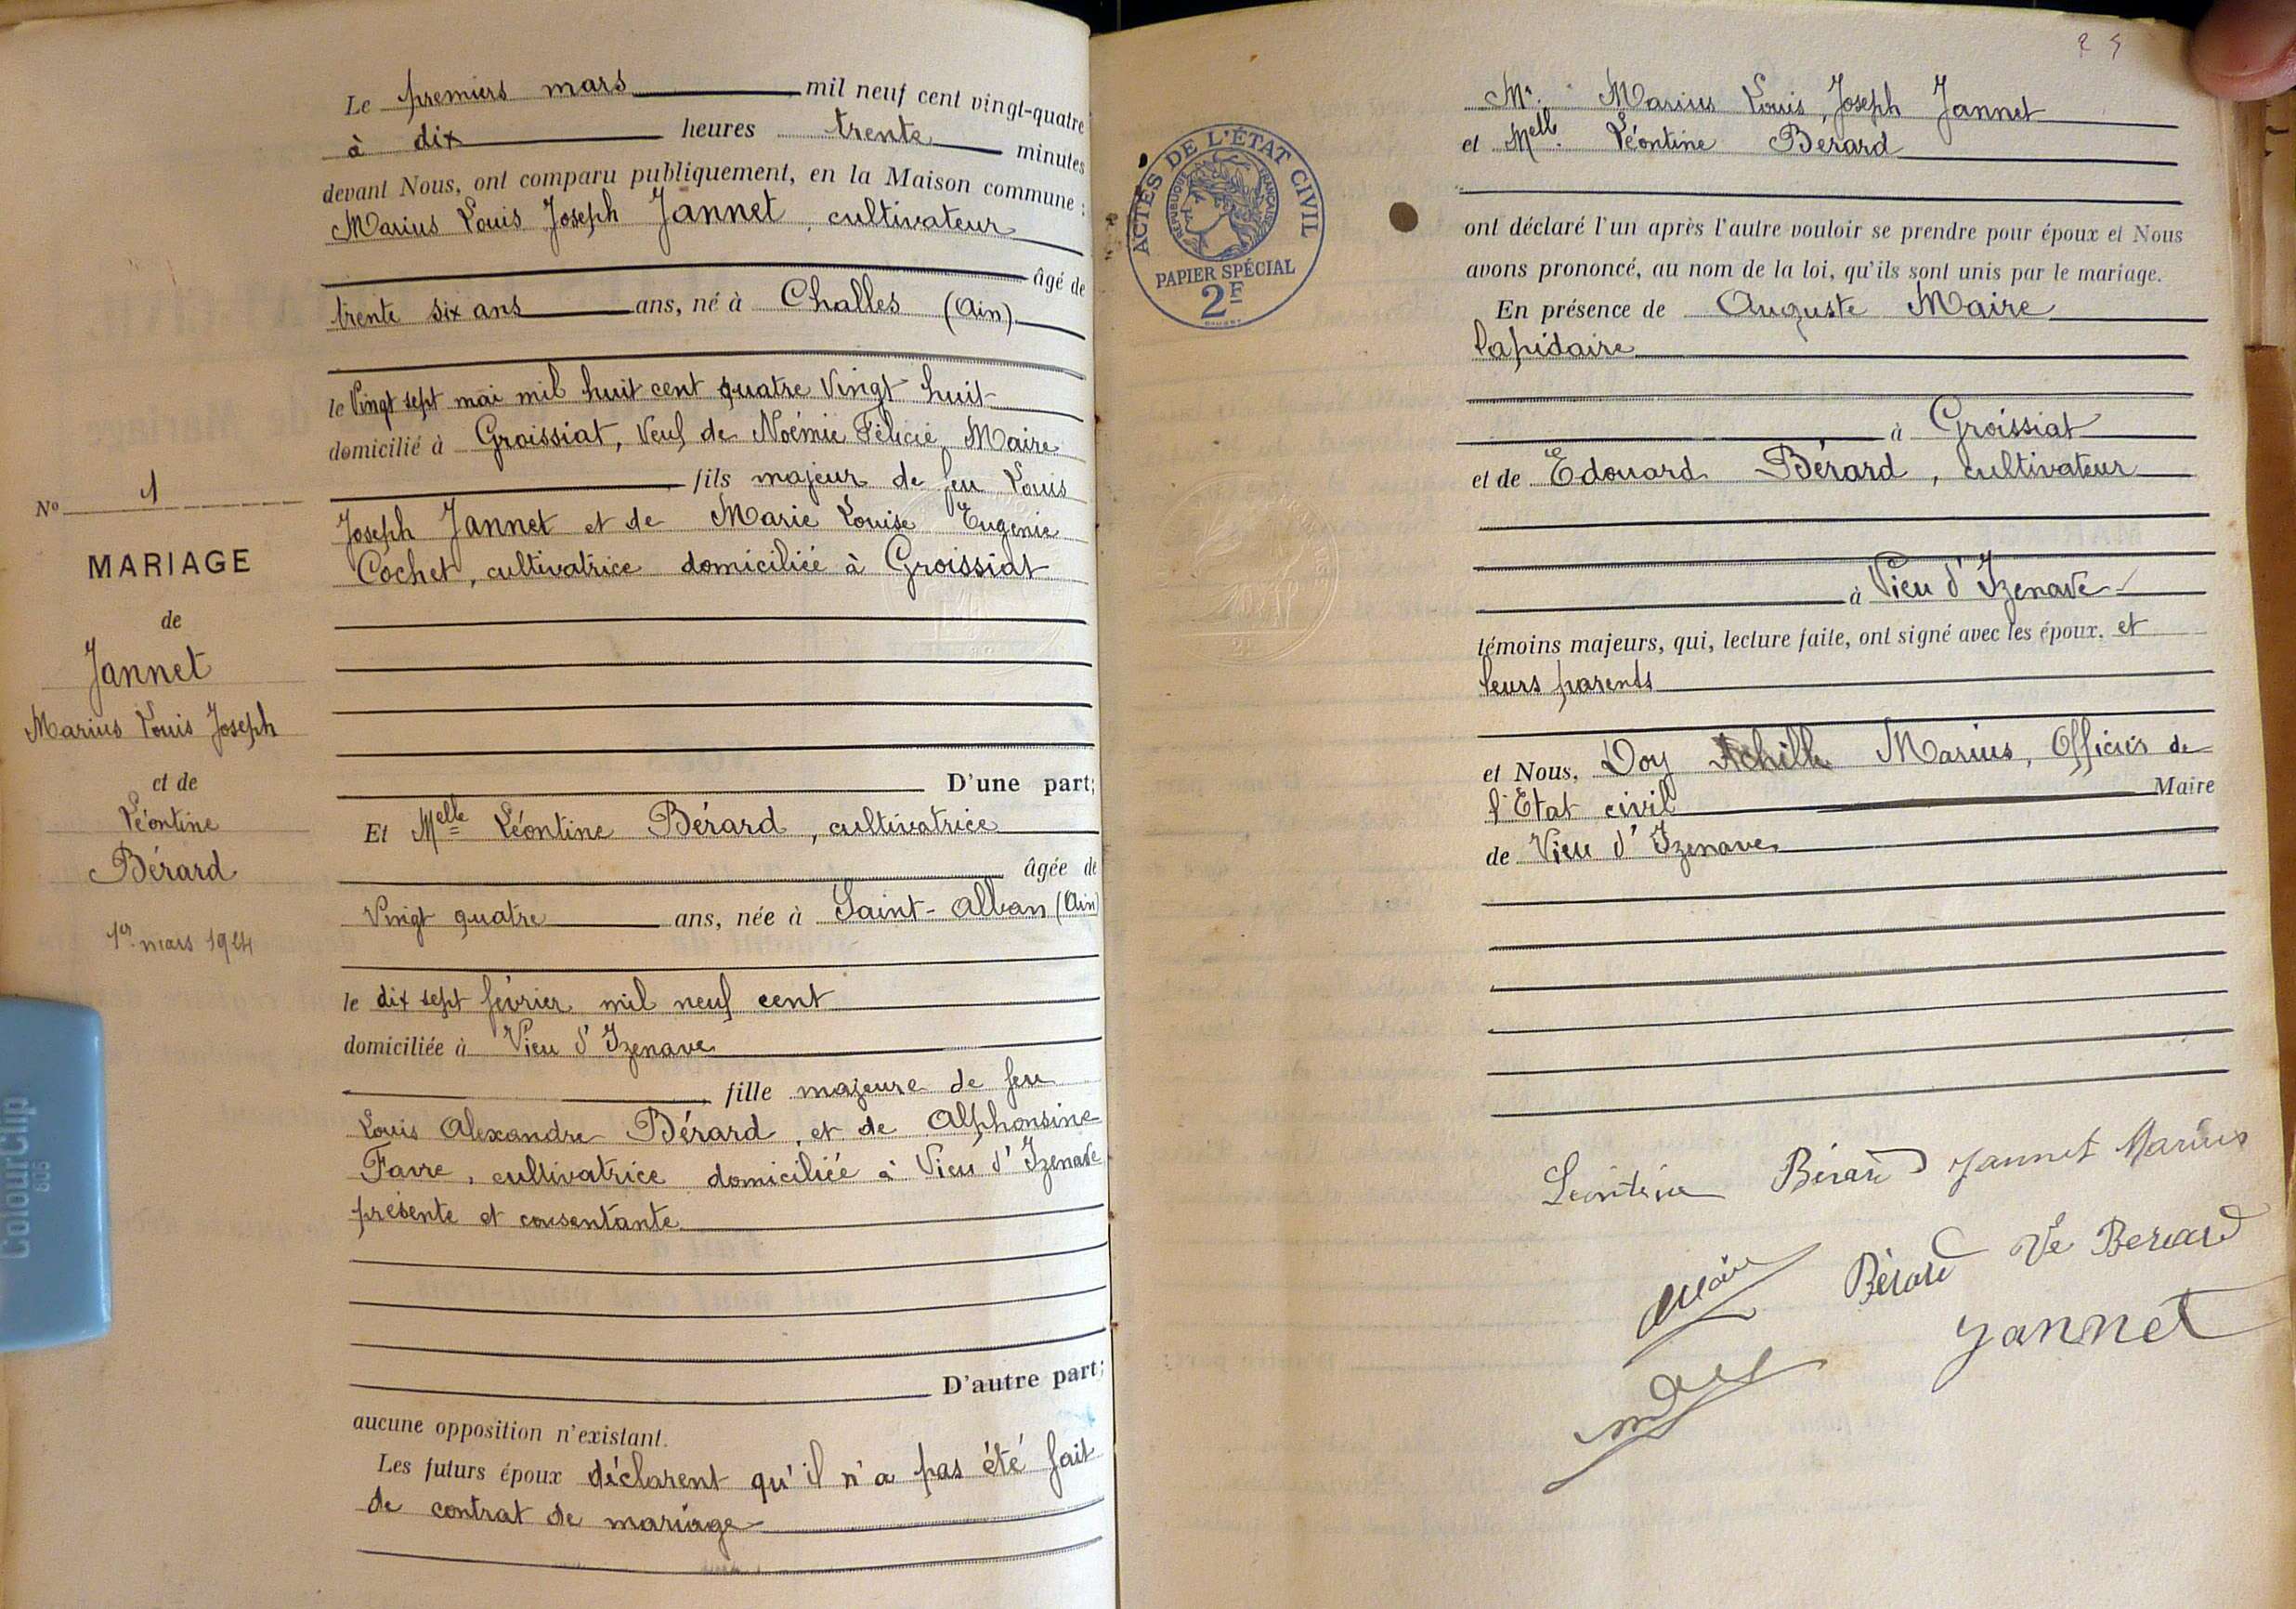 Nº 1
MARIAGE
de
Jannet
Marius Louis Joseph
et de
Léontine
Bérard
1er mars 1924
Le premiers mars mil neuf cent vingt-quatre
à dix heures trente minutes
devant Nous, ont comparu publiquement, en la Maison commune :
Marius Louis Joseph Jannet, cultivateur
âgé de
trente six ans ans, né à Challes (Ain)
le Vingt sept mai mil huit cent quatre Vingt huit
domicilié à Groissiat, Veuf de Noémie Félicie Maire
fils majeur de feu Louis
Joseph Jannet et de Marie Louise Eugenie
Cochet, cultivatrice domiciliée à Groissiat
D'une part;
Et Melle Léontine Bérard, cultivatrice
âgée de
Vingt quatre ans, née à Saint-Alban (Ain)
le dix sept février mil neuf cent
domiciliée à Vieu d'Izenave
fille majeure de feu
Louis Alexandre Bérard, et de Alphonsine
Favre, cultivatrice domiciliée à Vieu d'Izenave
présente et consentante
D'autre part;
aucune opposition n'existant.
Les futurs époux déclarent qu'il n'a pas été fait
de contrat de mariage
ACTES DE L'ÉTAT CIVIL
RÉPUBLIQUE FRANÇAISE
PAPIER SPÉCIAL
2F
Mr. Marius Louis, Joseph Jannet
et Melle. Léontine Berard
ont déclaré l'un après l'autre vouloir se prendre pour époux et Nous
avons prononcé, au nom de la loi, qu'ils sont unis par le mariage.
En présence de Auguste Maire
lapidaire
à Groissiat
et de Edouard Bérard, cultivateur
à Vieu d'Izenave
témoins majeurs, qui, lecture faite, ont signé avec les époux, et
leurs parents
et Nous, Doy Achille Marius, Officier de
l'Etat civil Maire
de Vieu d'Izenave
Léontine Bérard Jannet Marius
Maire Bérard Ve Berard
Jannet